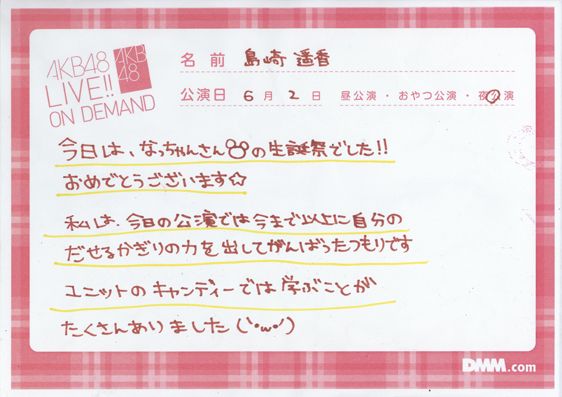 AKB48
LIVE!!
ON DEMAND
AKB
48
名 前 島崎 遥香
公演日 6 月 2 日 昼公演・おやつ公演・夜公演
今日は、なっちゃんさんの生誕祭でした!!
おめでとうございます☆
私は、今日の公演では今まで以上に自分の
だせるかぎりの力を出してがんばったつもりです
ユニットのキャンディーでは学ぶことが
たくさんありました(´・ω・`)
DMM.com